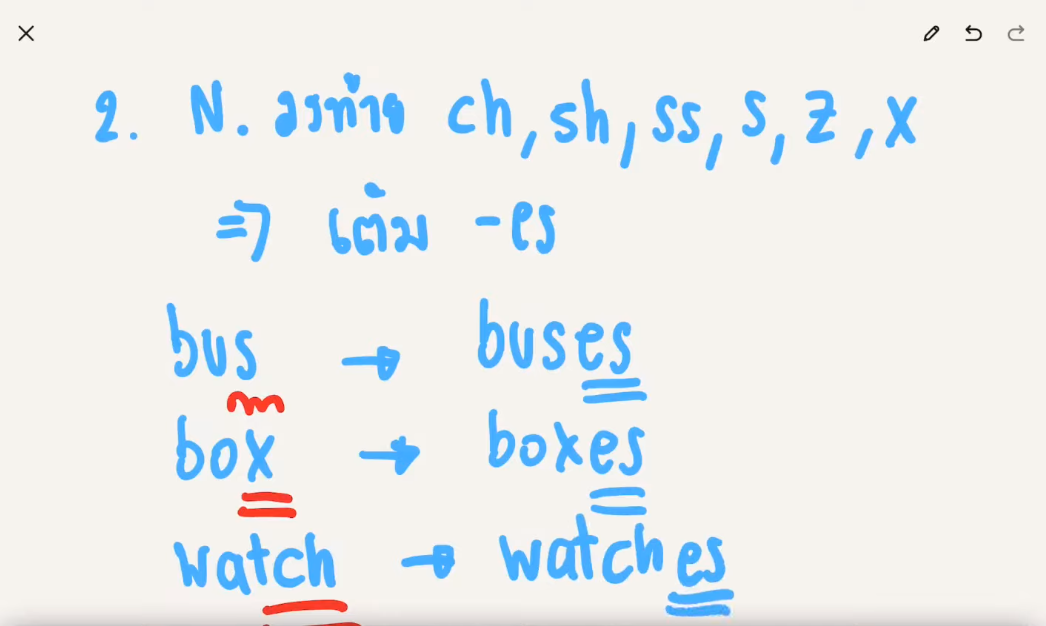 2. N. ลงท้าย ch, sh, ss, s, z, x
⇒ เติม -es
bus → buses
box → boxes
watch → watches